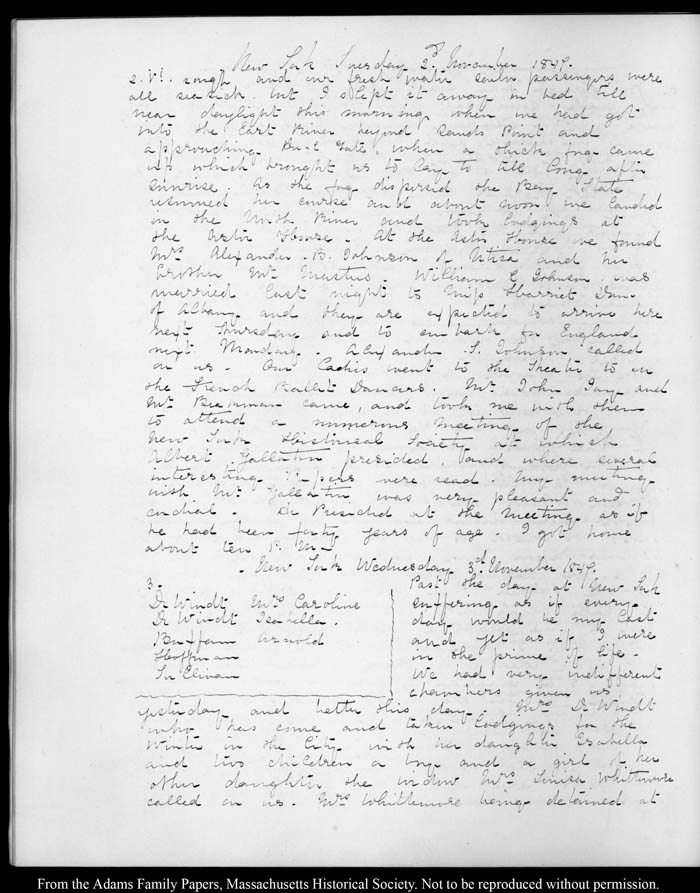 New York Tuesday 2d. November 1847.
2. VI. rough and our fresh water passengers were
all seasick. but I slept it away in bed till
near daylight this morning when we had got
into the East River beyond Sands Point and
approaching Hurl Gate. when a thick fog came
up which brought us to lay to till long after
sunrise. As the fog dispersed the Bay State
resumed her course and about noon we landed
in the North River and took lodgings at
the Astor House. At the Astor House we found
Mrs. Alexander B. Johnson of Utica and her
brother Mr. Masters. William C Johnson was
married last night to Miss Harriet Dan
of Albany and they are expected to arrive here
next Thursday and to embark for England
next Monday. Alexander S. Johnson called
on us. Our Ladies went to the Theatre to see
the French Ballet Dancers. Mr. John Jay and
Mr. Beekman came, and took me with them
to attend a numerous meeting of the
New York Historical Society at which
Albert Gallatin presided, and where several
interesting Papers were read. My meeting
with Mr Gallatin was very pleasant and
cordial. He Presided at the meeting as if
he had been forty years of age. I got home
about ten P. M.
New York Wednesday 3d. November 1847.
3.
De Windt Mrs Caroline
De Windt Isabella.
Buffum Arnold
Hoffman
Sullivan
Past the day at New York
suffering as if every
day would be my last
and yet as if I were
in the prime of life.
We had very indifferent
chambers given us
yesterday and better this day. Mrs. De Windt
who has come and taken Lodgings for the
winter in the City with her daughter Isabella
and two children a boy and a girl of her
other daughter the widow Mrs Louisa Whittemore
called on us. Mrs Whittemore being detained at
From the Adams Family Papers, Massachusetts Historical Society. Not to be reproduced without permission.